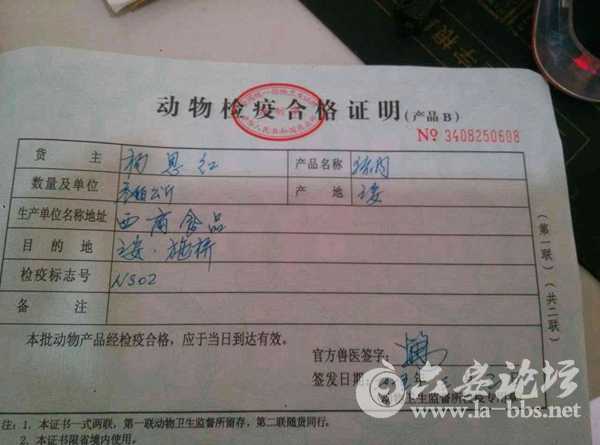 动物检疫合格证明(产品B)
№ 3408250608
货 主 恩红 产品名称 猪肉
数量及单位 叁佰公斤 产 地 六安
生产单位名称地址 西商食品
目 的 地 六安·施桥
检疫标志号 NS02
备 注
本批动物产品经检疫合格，应于当日到达有效。
官方兽医签字：
签发日期：
(第一联)(共二联)
注：1．本证书一式两联，第一联动物卫生监督所留存，第二联随货同行。
2．本证书限省境内使用。
六安论坛
www.la-bbs.net